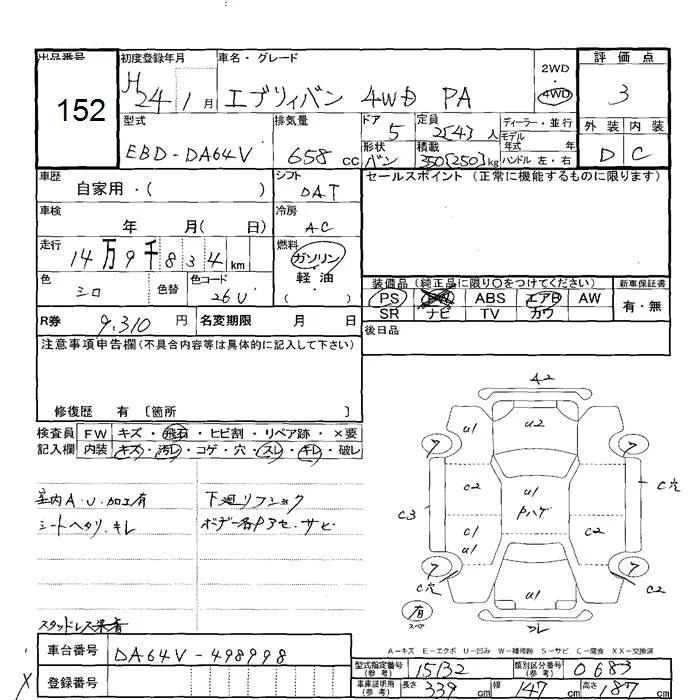 出品番号 152
初度登録年月 H24年1月
車名・グレード エブリィバン 4WD PA
2WD 4WD
評価点 3
外装 内装
D C
型式 EBD-DA64V
排気量 658 cc
ドア 5
形状 バン
定員 2[4]人
積載 350[250]kg
ディーラー・並行
モデル年式 年式
ハンドル 左・右
車歴 自家用・( )
シフト DAT
セールスポイント (正常に機能するものに限ります)
車検 年 月( 日)
冷房 AC
走行 14万9千834km
燃料 ガソリン
軽油・
( )
色 シロ 色替 色コード 26U
装備品 (純正品に限り○をつけてください) 新車保証書
PS PW ABS エアB AW 有・無
SR ナビ TV カワ
R券 9,310円 名変期限 月 日
後日品
注意事項申告欄(不具合内容等は具体的に記入して下さい)
修復歴 有 [箇所 ]
検査員 FW キズ・飛石・ヒビ割・リペア跡・×要
記入欄 内装 キズ・汚レ・コゲ・穴・スレ・キレ・破レ
室内A・U・加工有 下廻リフシック
シートヘタリ、キレ ボデー各Pアセ、サビ
スタッドレス装着
A2
U1 U2
7 7
C2 U1 Pハゲ C穴
C3
C1 C2
U1
7 7
C穴 U1 C2
有 スペ
フレ
A-キズ E-エクボ U-凹み W-補修跡 S-サビ C-腐食 XX-交換済
車台番号 DA64V-498998
登録番号
型式指定番号(参考) 15132 類別区分番号(参考) 0683
車庫証明用(参考) 長さ 339cm 幅 147cm 高さ 187cm